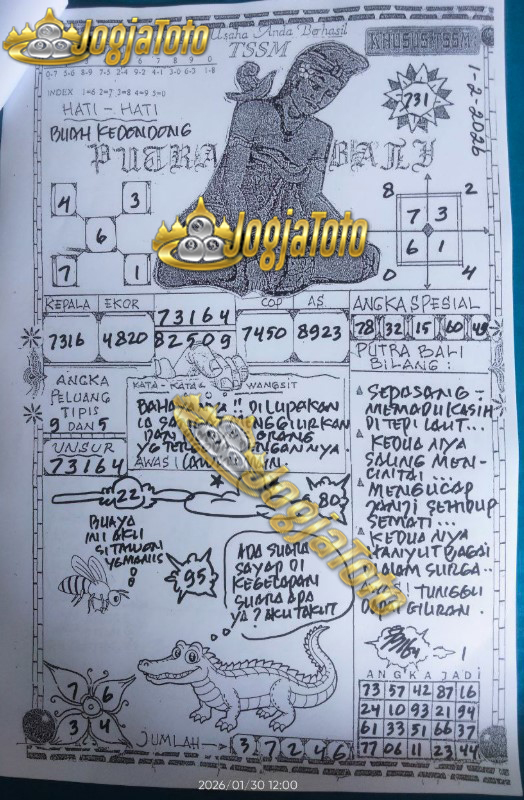 JogjaToto
Usaha Anda Berhasil
TSSM
KHUSUS TSSM
1-2-2026
731
INDEX 1=6 2=7 3=8 4=9 5=0
HATI - HATI
BUAH KEDONDONG
PUTRA BALI
4 3
6
7 1
8 2
7 3
6 1
0 4
JogjaToto
KEPALA EKOR
7316 4820
73164
82509
COP AS
7450 8923
ANGKA SPESIAL
78 32 15 60 49
PUTRA BALI
BILANG :
SEPASANG -
MEMADU KASIH
DI TEPI LAUT...
KEDUA NYA
SALING MEN-
CINTAI ...
MENGUCAP
JANJI SEHIDUP
SEMATI...
KEDUA NYA
HANYUT BAGAI
DALAM SURGA..
TUNGGU
GILIRAN.
ANGKA
PELUANG
TIPIS
9 DAN 5
UNSUR
73164
KATA - KATA WANGSIT
DI LUPAKAN
DAN ORANG
AWAS !
22
80
BUAYA
INI AKU
SITAWON
YG MANIS
95
ADA SUARA
SAYAP DI
KEGELAPAN
SUARA APA
YA ? AKU TAKUT
JogjaToto
1
ANGKA JADI
73 57 42 87 16
24 10 93 21 94
61 33 51 66 37
77 06 11 23 44
7 6
3 4
JUMLAH
3 7 2 4 6
2026/01/30 12:00